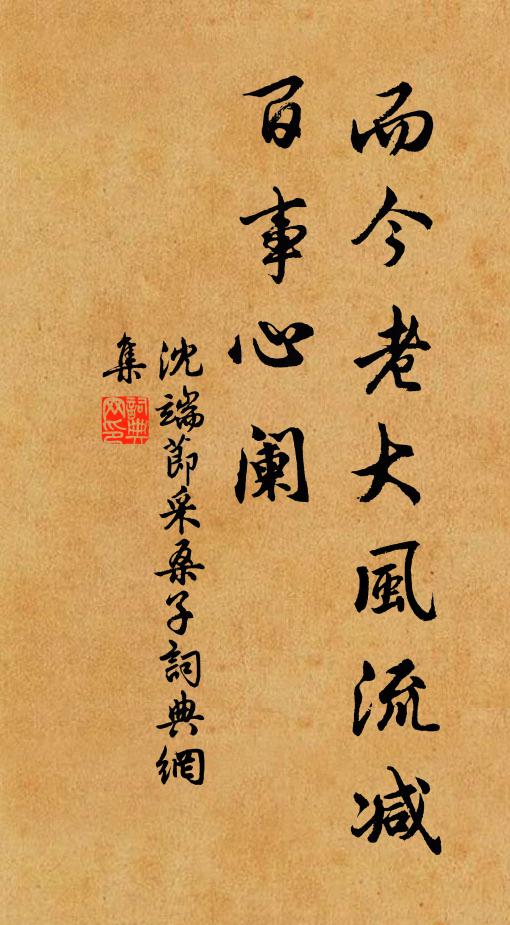 而今老大風流减
百事心阑
沈端節采桑子詞典網
集
詞典
网印